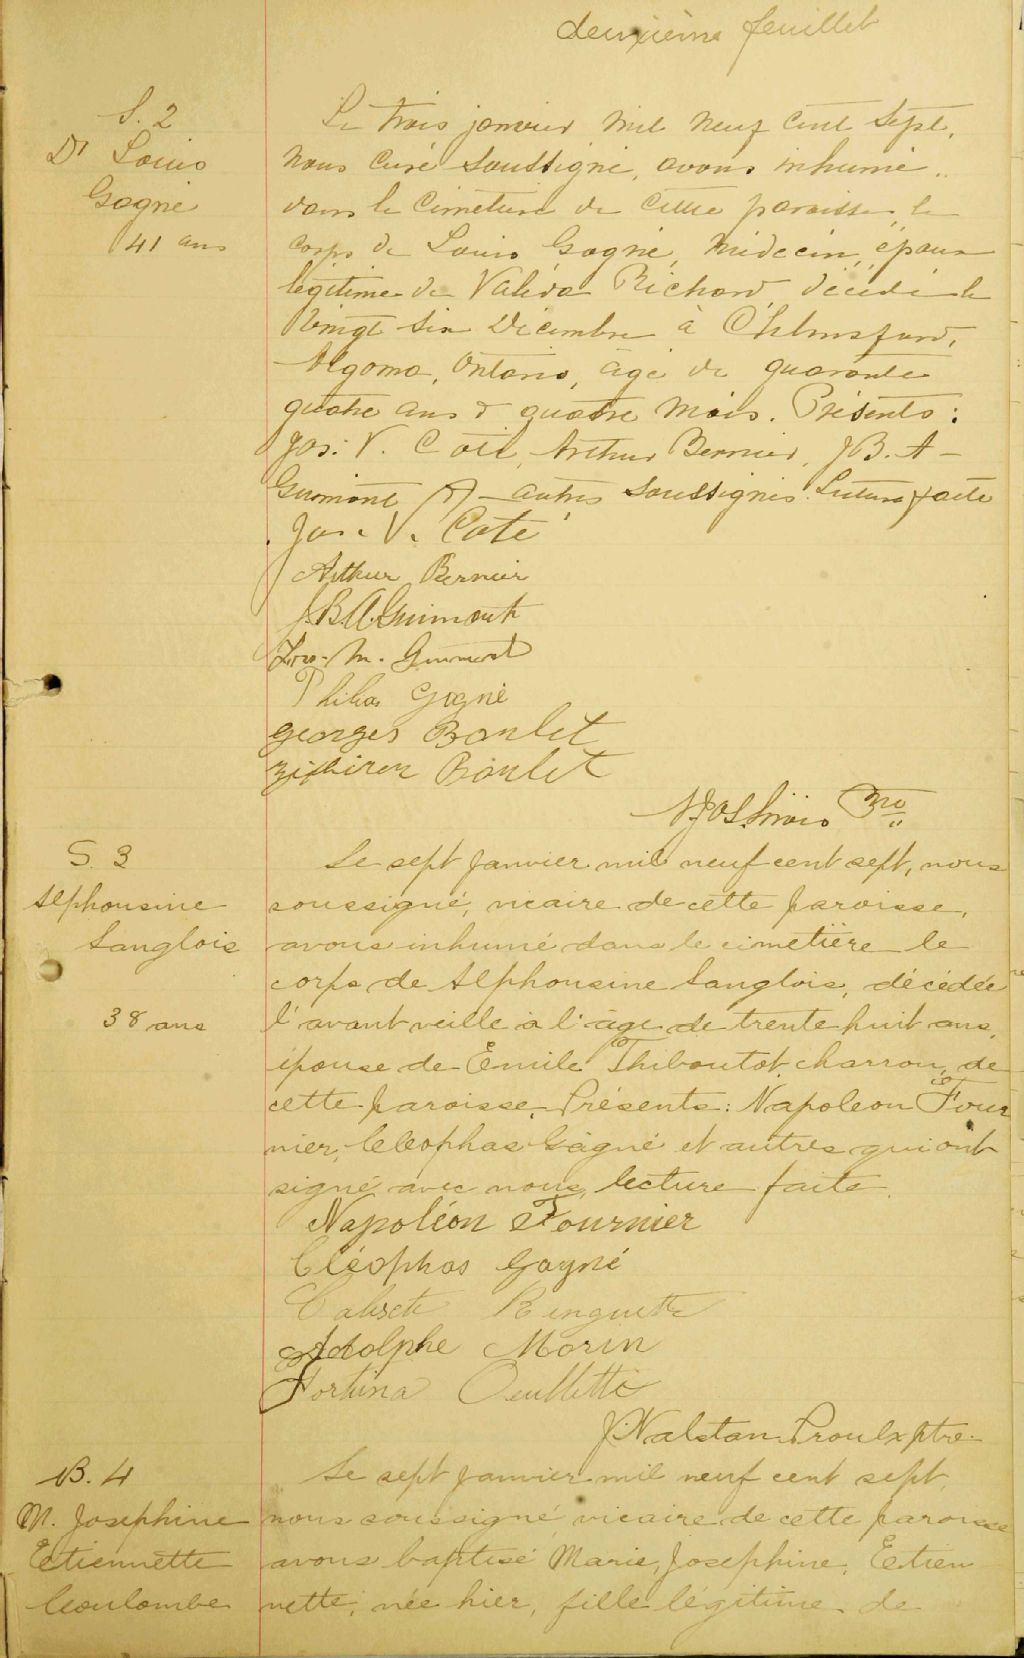 deuxième feuillet
S. 2
Dr Louis
Gagné
41 ans
Le trois janvier mil neuf cent sept,
nous curé soussigné, avons inhumé
dans le cimetière de cette paroisse le
corps de Louis Gagné, médecin, époux
légitime de Valéda Richard, décédé le
vingt six décembre à Chelmsford,
Algoma, Ontario, âgé de quarante
quatre ans & quatre mois. Présents:
Jos. V. Coté, Arthur Bernier, J.B.A-
Guimont & autres soussignés. Lecture faite
Jos. V. Coté
Arthur Bernier
J.B.A. Guimont
M. Guimont
Gagné
Georges Boulet
Zéphirin Boulet
S. 3
Alphonsine
Langlois
38 ans
Le sept janvier mil neuf cent sept, nous
soussigné, vicaire de cette paroisse,
avons inhumé dans le cimetière le
corps de Alphonsine Langlois, décédée
l'avant veille à l'âge de trente huit ans,
épouse de Émile Thiboutot, charron, de
cette paroisse. Présents: Napoleon Four
nier, Cléophas Gagné et autres qui ont
signé avec nous, lecture faite.
Napoléon Fournier
Cléophas Gagné
Ringuette
Adolphe Morin
Fortuna Ouellette
J. Nalstan Proulx ptre.
B. 4
M. Josephine
Etiennette
Coulombe
Le sept janvier mil neuf cent sept,
nous soussigné vicaire de cette paroisse
avons baptisé Marie, Josephine, Etien
nette, née hier, fille légitime de